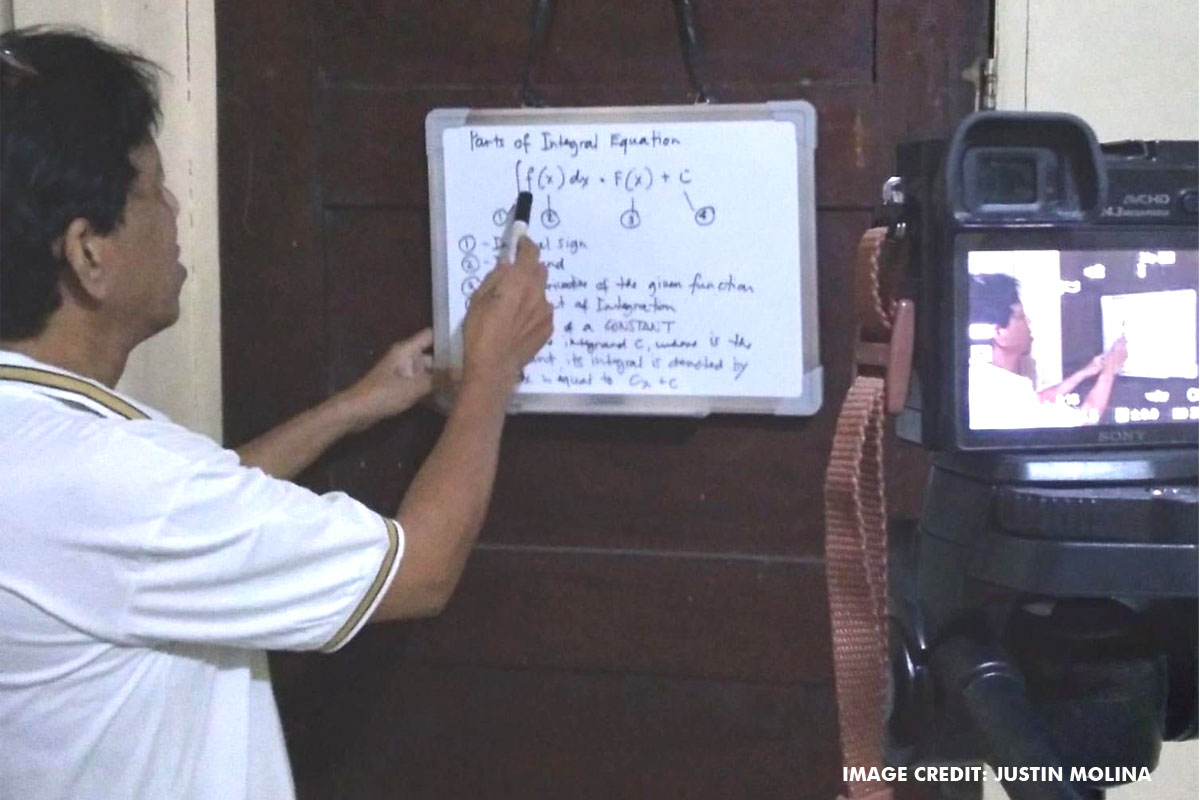 Parts of Integral Equation
∫f(x) dx = F(x) + C
① ② ③ ④
① - Integral sign
②
③ of the given function
of Integration
of a CONSTANT
integrand C, where is the
its integral is denoted by
is equal to Cx + C
AVCHD
24.3 MEGA PIXELS
SONY
IMAGE CREDIT: JUSTIN MOLINA